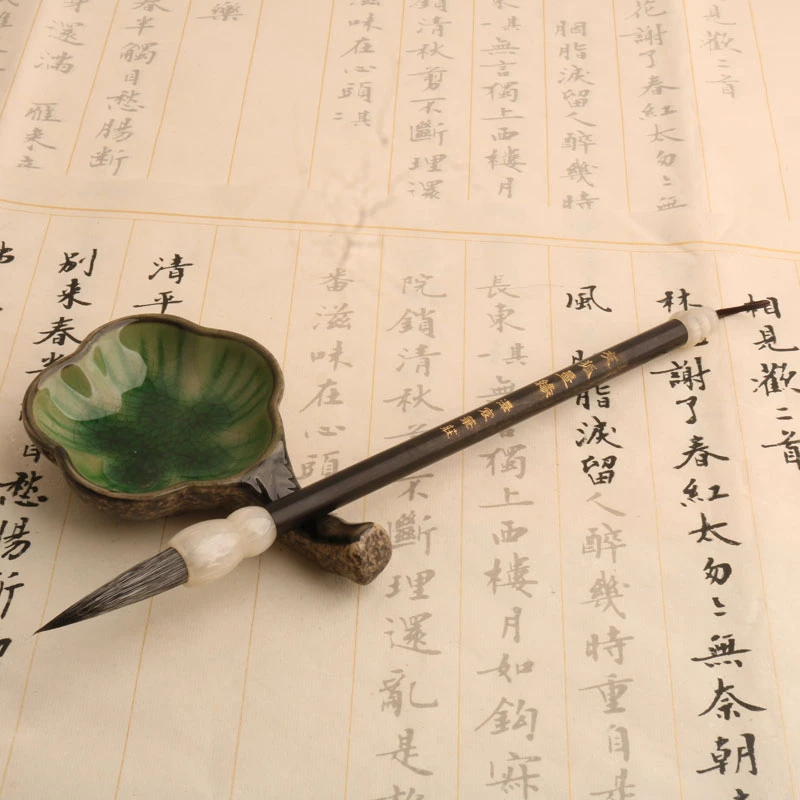 見歡二首
花謝了春紅太匆〻無
胭脂淚留人醉幾時
東 一其 無言獨上西樓月
鎖清秋剪不斷理還
滋味在心頭 其二
樂
春半觸目愁腸斷
還滿 雁來
相見歡二首
林 謝了春紅太匆〻無奈朝
風 脂淚留人醉幾時重自是
長東 一其 無言獨上西樓月如鈎
院鎖清秋 不斷理還亂是
番滋味在心頭
清平
別來春半 目愁腸斷